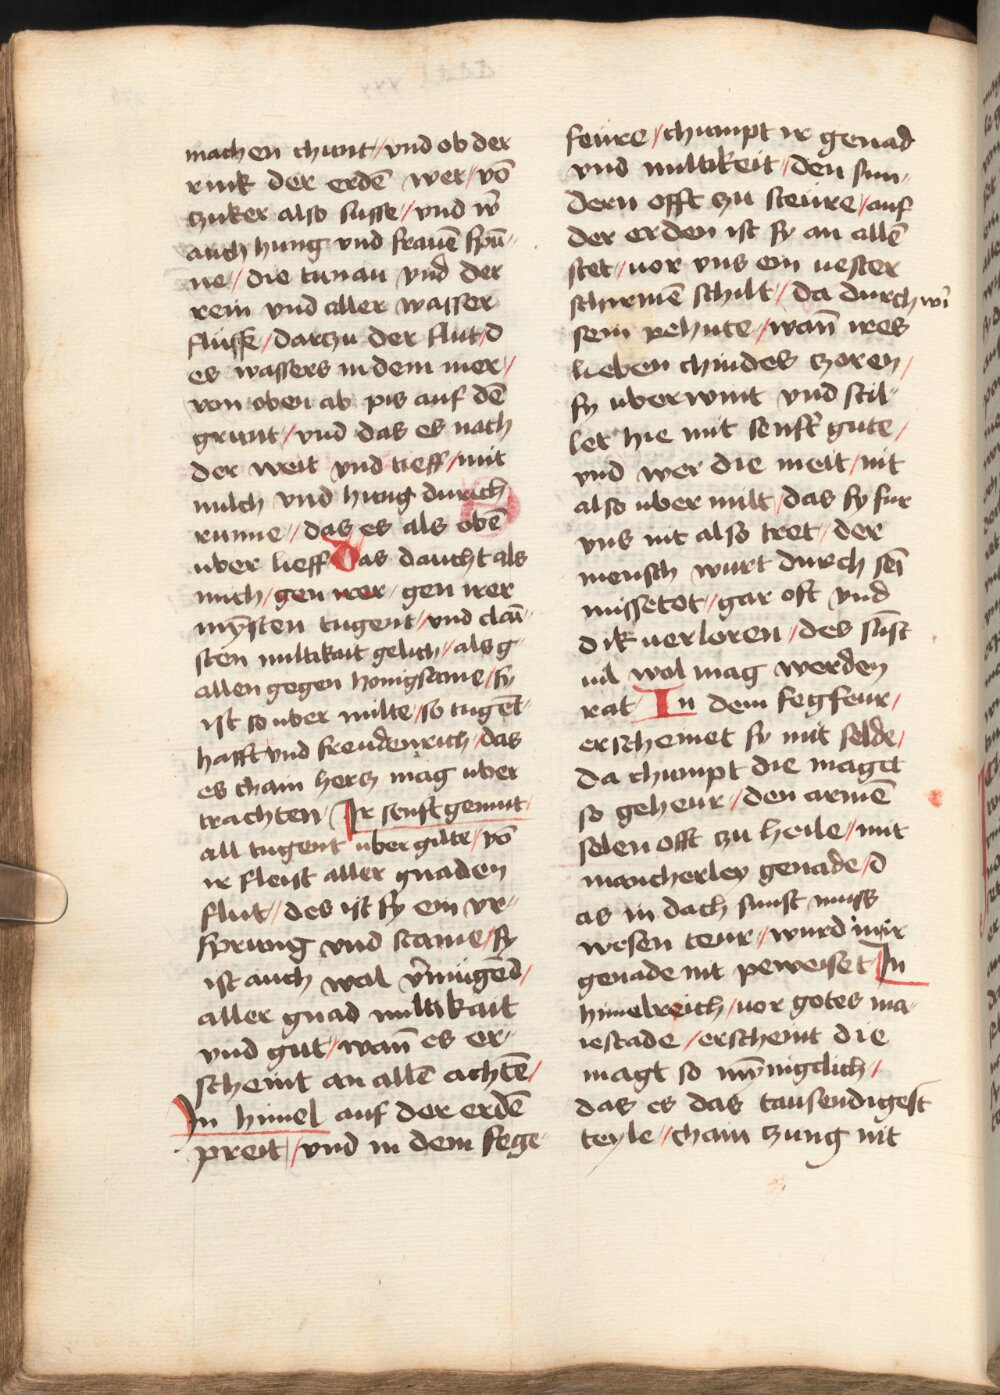 machen chunt / vnd ob der
rink der erdē wer / vō
zuker also susse / vnd w̄
auch hung vnd frauē spū-
ne / die tunau vnd der
rein vnd aller wasser
flusse / darzu der flut / d
es wassers in dem mer /
von oben ab pis auf dē
grunt / vnd das es nach
der weit vnd tieff / mit
milch vnd hung durich
runne / das es als obē
uber lieff Das daucht als
mich / gen irer / gen irer
mȳsten tugent / vnd clai-
sten miltikait gelich / als g
allen gegen honigsame / sy
ist so uber milte / so tugēt-
hafft vnd freudenrich / das
es chain hercz mag uber
trachten / Ir senft gemut
all tugent uber gilte / vō
ir fleust aller gnaden
flut / des ist sy ein vr-
sprung vnd stame / sy
ist auch wol v̄mugēd /
aller gnad miltikait
vnd gut / wañ es er-
scheint an allē achtē /
In himel auf der erdē
preit / vnd in dem fege
feure / chumpt ir genad
vnd miltikeit / den sun-
dern offt zu steure / auf
der erden ist sy an allē
stet / vor vns ein uester
schirmē schilt / da durch wī
sein pehute / wañ ires
lieben chindes zoren /
sy uberwint vnd stil-
let hie mit senft gute /
vnd wer die meit / nit
also uber milt / das sy fur
vns nit also tret / der
mensch wurt durch sēi
missetot / gar oft vnd
dik uerloren / des sust
uil wol mag werden
rat In dem fegfeur /
erscheinet sy mit selde /
da chumpt die maget
so geheur / den armē
selen offt zu heile / mit
mancherley genade / d
as in dach sunst muss
wesen teur / wurd in ir
genade nit peweiset In
himelreich / uor gotes ma-
iestade / erscheint die
magt so mȳnigclich /
das es das tausendigest
teyle / chain zung nit